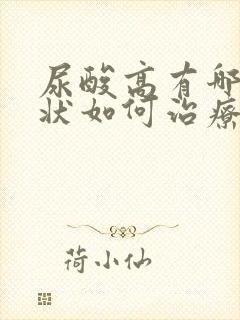 尿酸高有哪
状如何治療
荷小仙